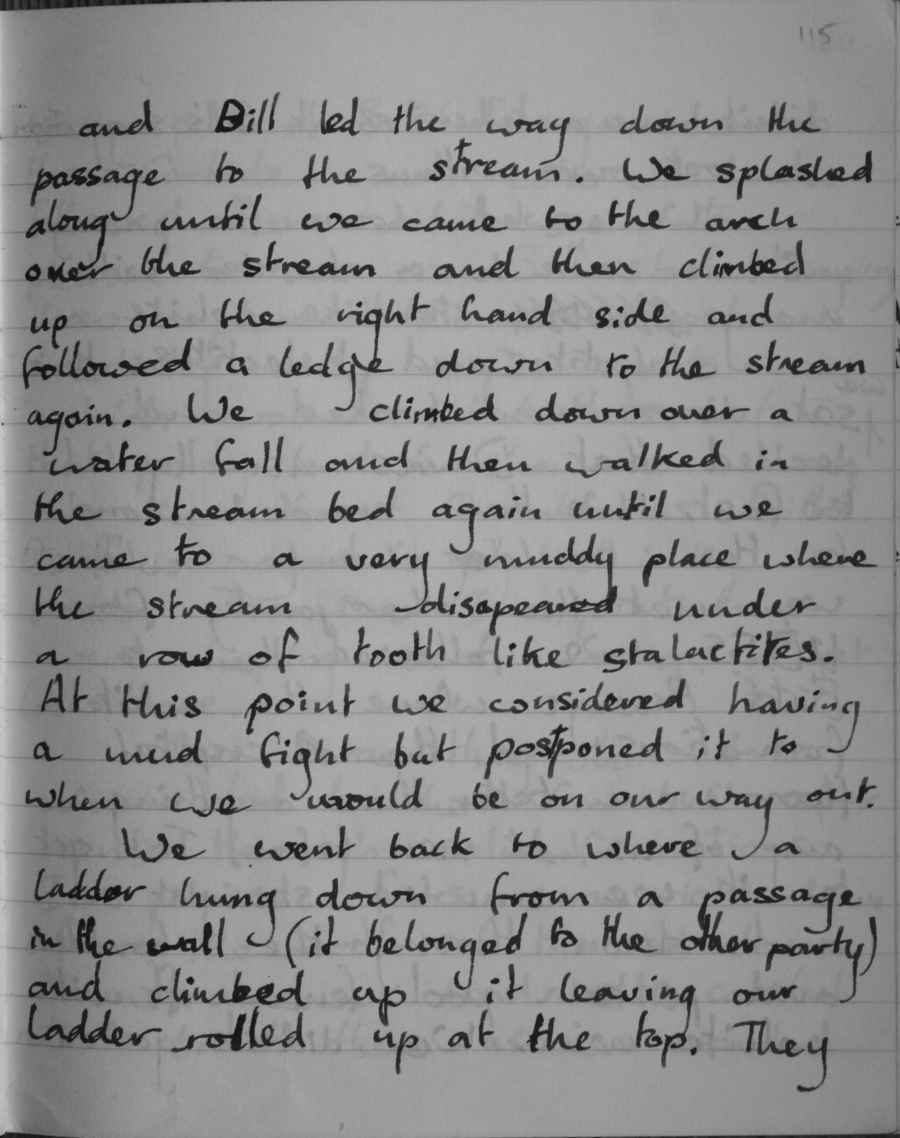 115
and Bill led the way down the
passage to the stream. We splashed
along until we came to the arch
over the stream and then climbed
up on the right hand side and
followed a ledge down to the stream
again. We climbed down over a
water fall and then walked in
the stream bed again until we
came to a very muddy place where
the stream disapeared under
a row of tooth like stalactites.
At this point we considered having
a mud fight but postponed it to
when we would be on our way out.
We went back to where a
ladder hung down from a passage
in the wall (it belonged to the other party)
and climbed up it leaving our
ladder rolled up at the top. They